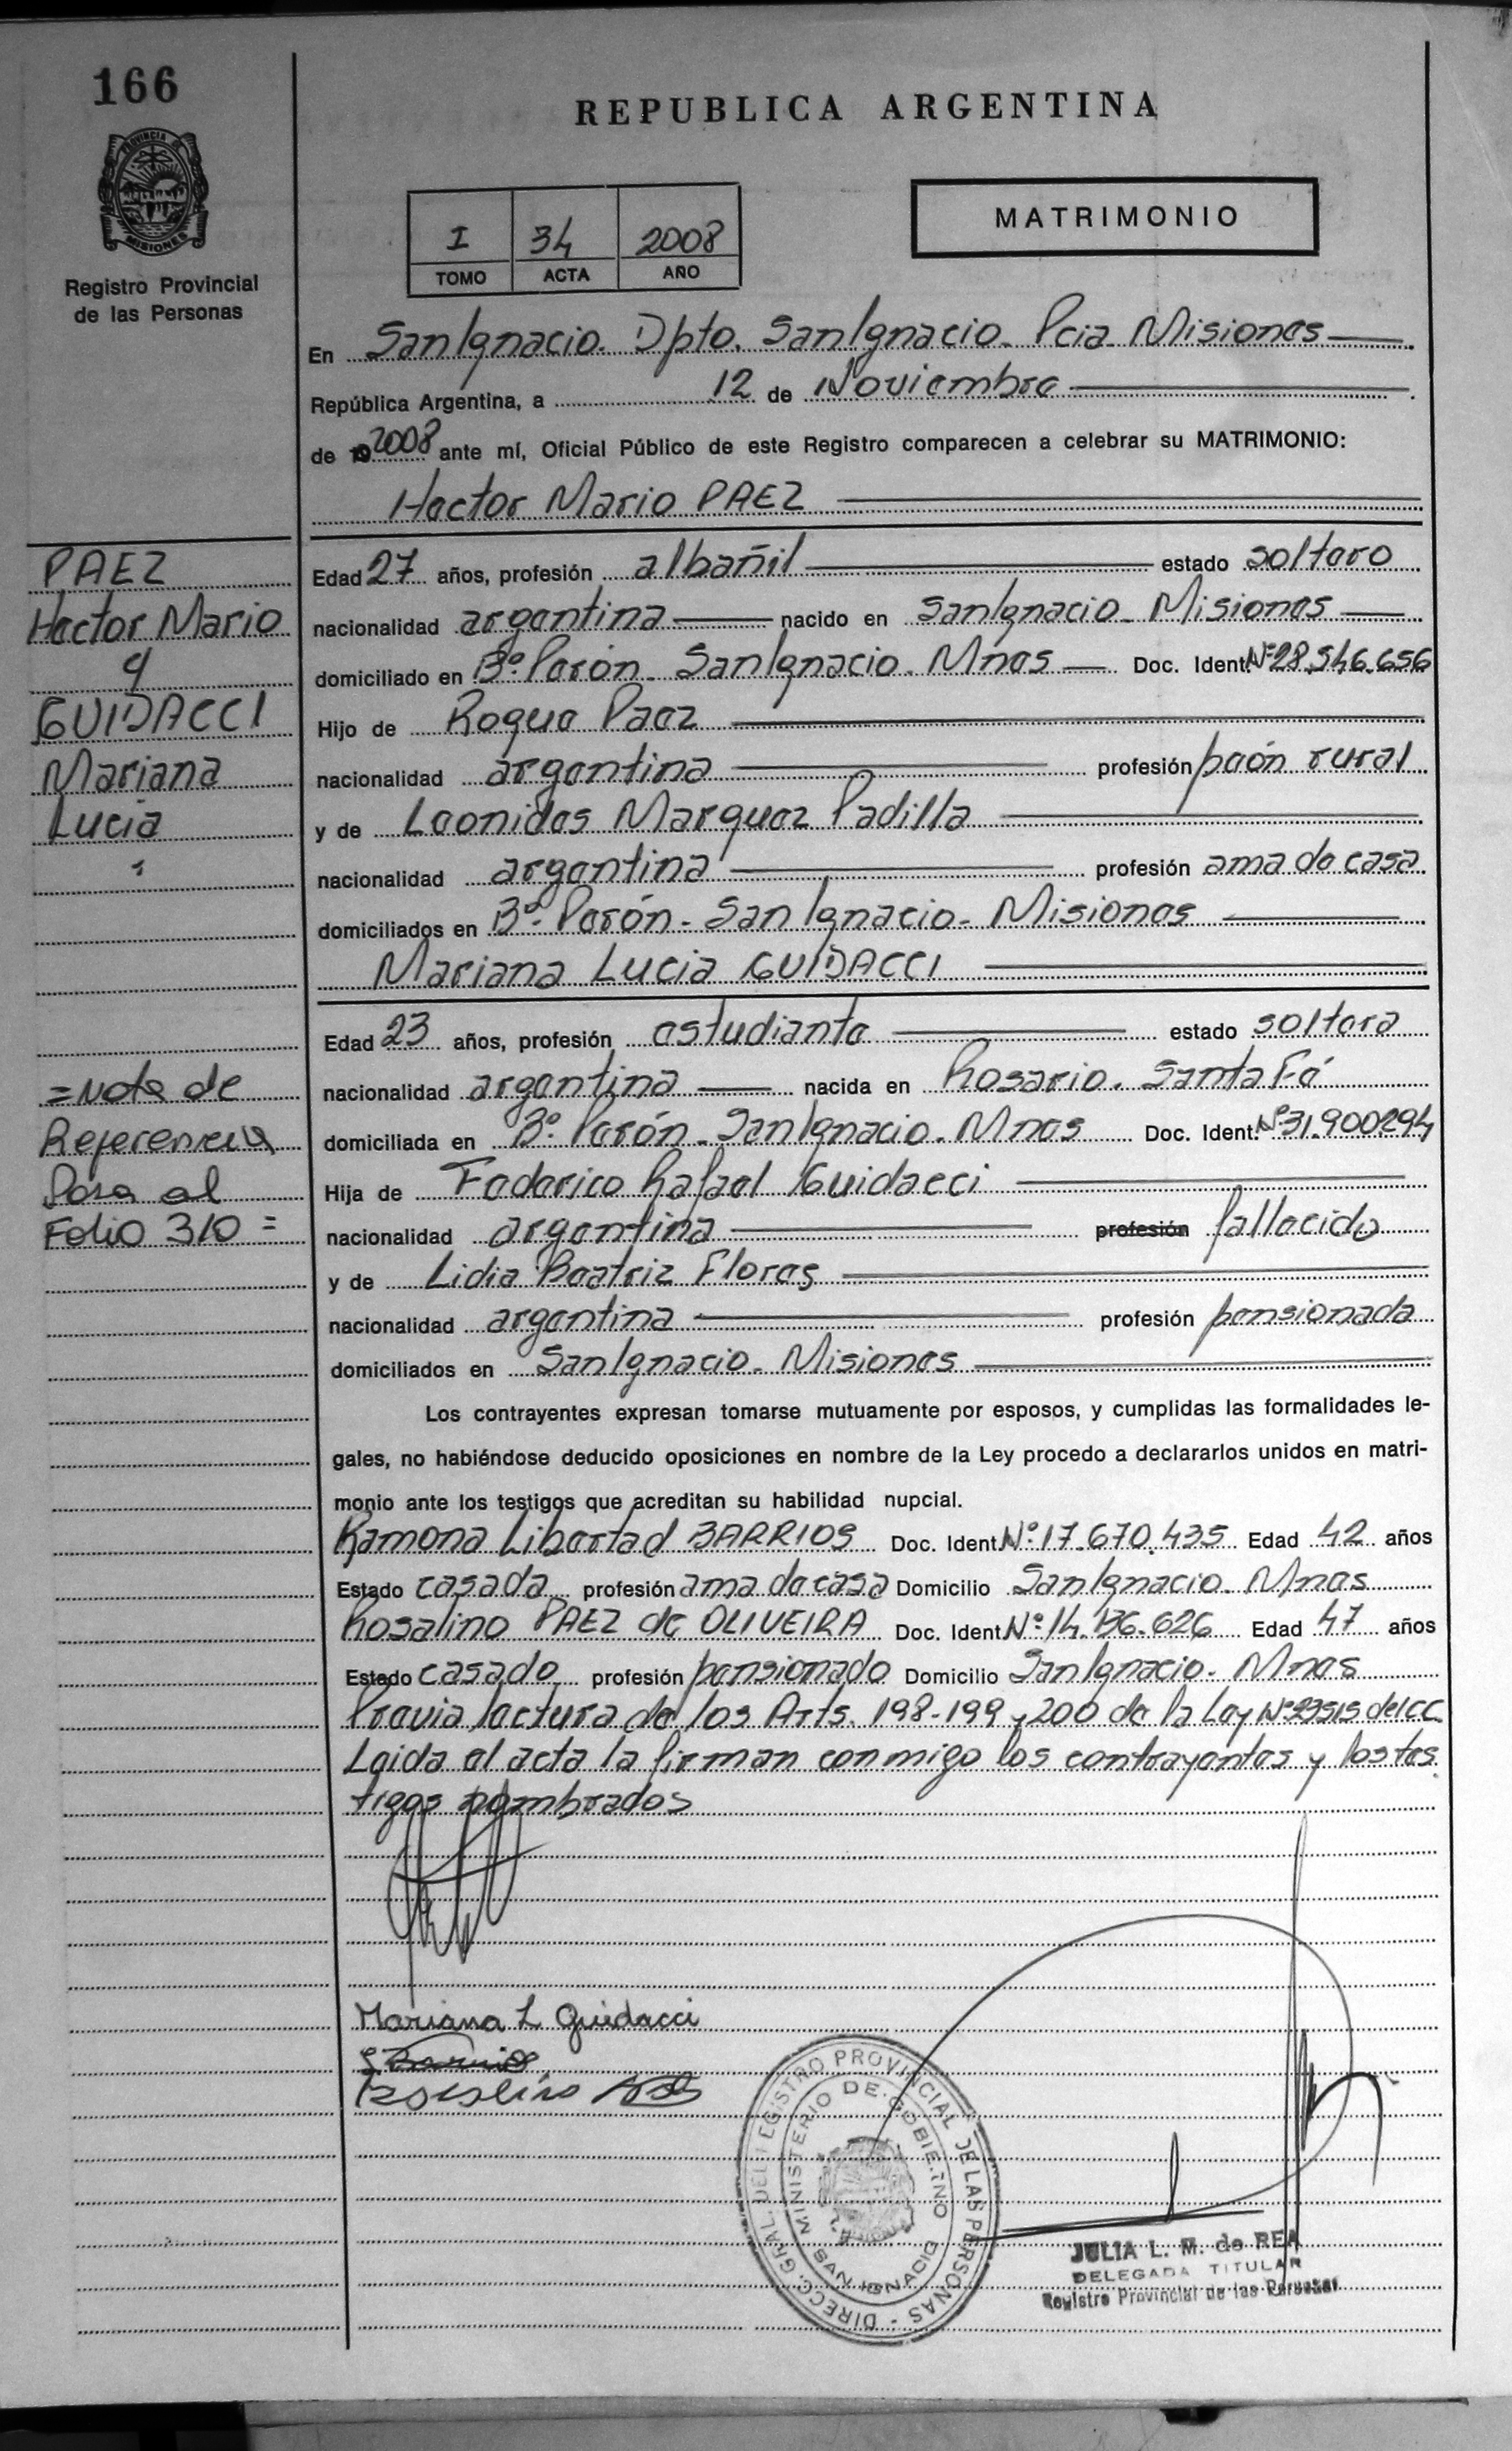 166
PROVINCIA DE
MISIONES
Registro Provincial
de las Personas
REPUBLICA ARGENTINA
I 34 2008
TOMO ACTA AÑO
MATRIMONIO
En San Ignacio. Dpto. San Ignacio. Pcia Misiones
República Argentina, a 12 de Noviembre
de 2008 ante mí, Oficial Público de este Registro comparecen a celebrar su MATRIMONIO:
Hector Mario PAEZ
PAEZ
Hector Mario
y
GUIDACCI
Mariana
Lucia
Edad 27 años, profesión albañil estado soltero
nacionalidad argentina nacido en San Ignacio. Misiones
domiciliado en Bº. Perón. San Ignacio. Mnes Doc. Ident. Nº 28.546.656
Hijo de Roque Paez
nacionalidad argentina profesión peón rural
y de Leonidas Marquez Padilla
nacionalidad argentina profesión ama de casa
domiciliados en Bº. Perón - San Ignacio - Misiones
Mariana Lucia GUIDACCI
Edad 23 años, profesión estudiante estado soltera
nacionalidad argentina nacida en Rosario. Santa Fé
domiciliada en Bº. Perón. San Ignacio. Mnes Doc. Ident. Nº 31.900294
Hija de Federico Rafael Guidacci
nacionalidad argentina profesión fallecido
y de Lidia Beatriz Flores
nacionalidad argentina profesión pensionada
domiciliados en San Ignacio. Misiones
= Nota de
Referencia
Pasa al
Folio 310 =
Los contrayentes expresan tomarse mutuamente por esposos, y cumplidas las formalidades le-
gales, no habiéndose deducido oposiciones en nombre de la Ley procedo a declararlos unidos en matri-
monio ante los testigos que acreditan su habilidad nupcial.
Ramona Libertad BARRIOS Doc. Ident. Nº 17.670.435 Edad 42 años
Estado casada profesión ama de casa Domicilio San Ignacio. Mnes
Rosalino PAEZ de OLIVEIRA Doc. Ident. Nº 14. Edad 47 años
Estado casado profesión pensionado Domicilio San Ignacio. Mnes
Previa lectura de los Arts. 198-199 y 200 de la Ley Nº 23515 del CC.
Leida el acta la firman conmigo los contrayentes y los tes
tigos nombrados
Mariana L Guidacci
Barrios
Rosalino
DIRECC. GRAL. DEL REGISTRO PROVINCIAL DE LAS PERSONAS -
MINISTERIO DE GOBIERNO
SAN IGNACIO
JULIA L. M. de REA
DELEGADA TITULAR
Registro Provincial de las Personas